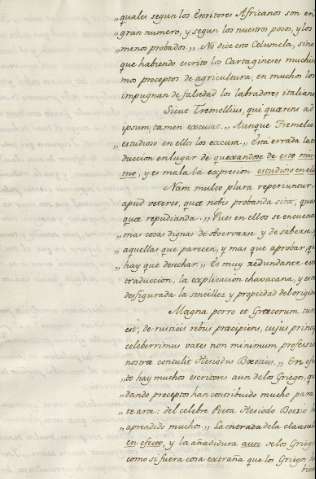 „quales segun los Escritores Africanos son en
„gran numero, y segun los nuestros pocos, y los
„menos probados„. No dice eso Columela, sino
que habiendo escrito los Cartagineses muchos
mas preceptos de agricultura, en muchos los
impugnan de falsedad los labradores italianos
Sicut Tremellius, qui quærens id
ipsum, tamen excusat. „ Aunque Tremelio
estudioso en ellos los excusa„. Está errada la tra
duccion en lugar de quexandose de esto mis
mo, y es mala la expresion estudioso en el
Nam multo plura reperiuntur
apud veteres, quæ nobis probanda sint, quam
quæ repudianda. „ Pues en ellos se encuentran
„mas cosas dignas de observarse y de saberse,
„aquellas que parecen, y mas que aprobar, que
„hay que desechar.„ Es muy redundante esta
traduccion, la explicación chavacana, y está
desfigurada la sencillez y propiedad del origi
Magna porro et Græcorum tur
est, de rusticis rebus præcipiens, cujus princ
celeberrimus vates non minimum professi
nostræ contulit Hesiodus Bœotius. „ En efe
„to hay muchos escritores aun de los Griegos, que
„dando preceptos han contribuido mucho para
„este arte: del celebre Poeta Hesiodo Beocio h
„aprendido mucho.„ La entrada de la clausula
en efecto, y la añadidura aun de los Griegos
como si fuera cosa extraña que los Griegos